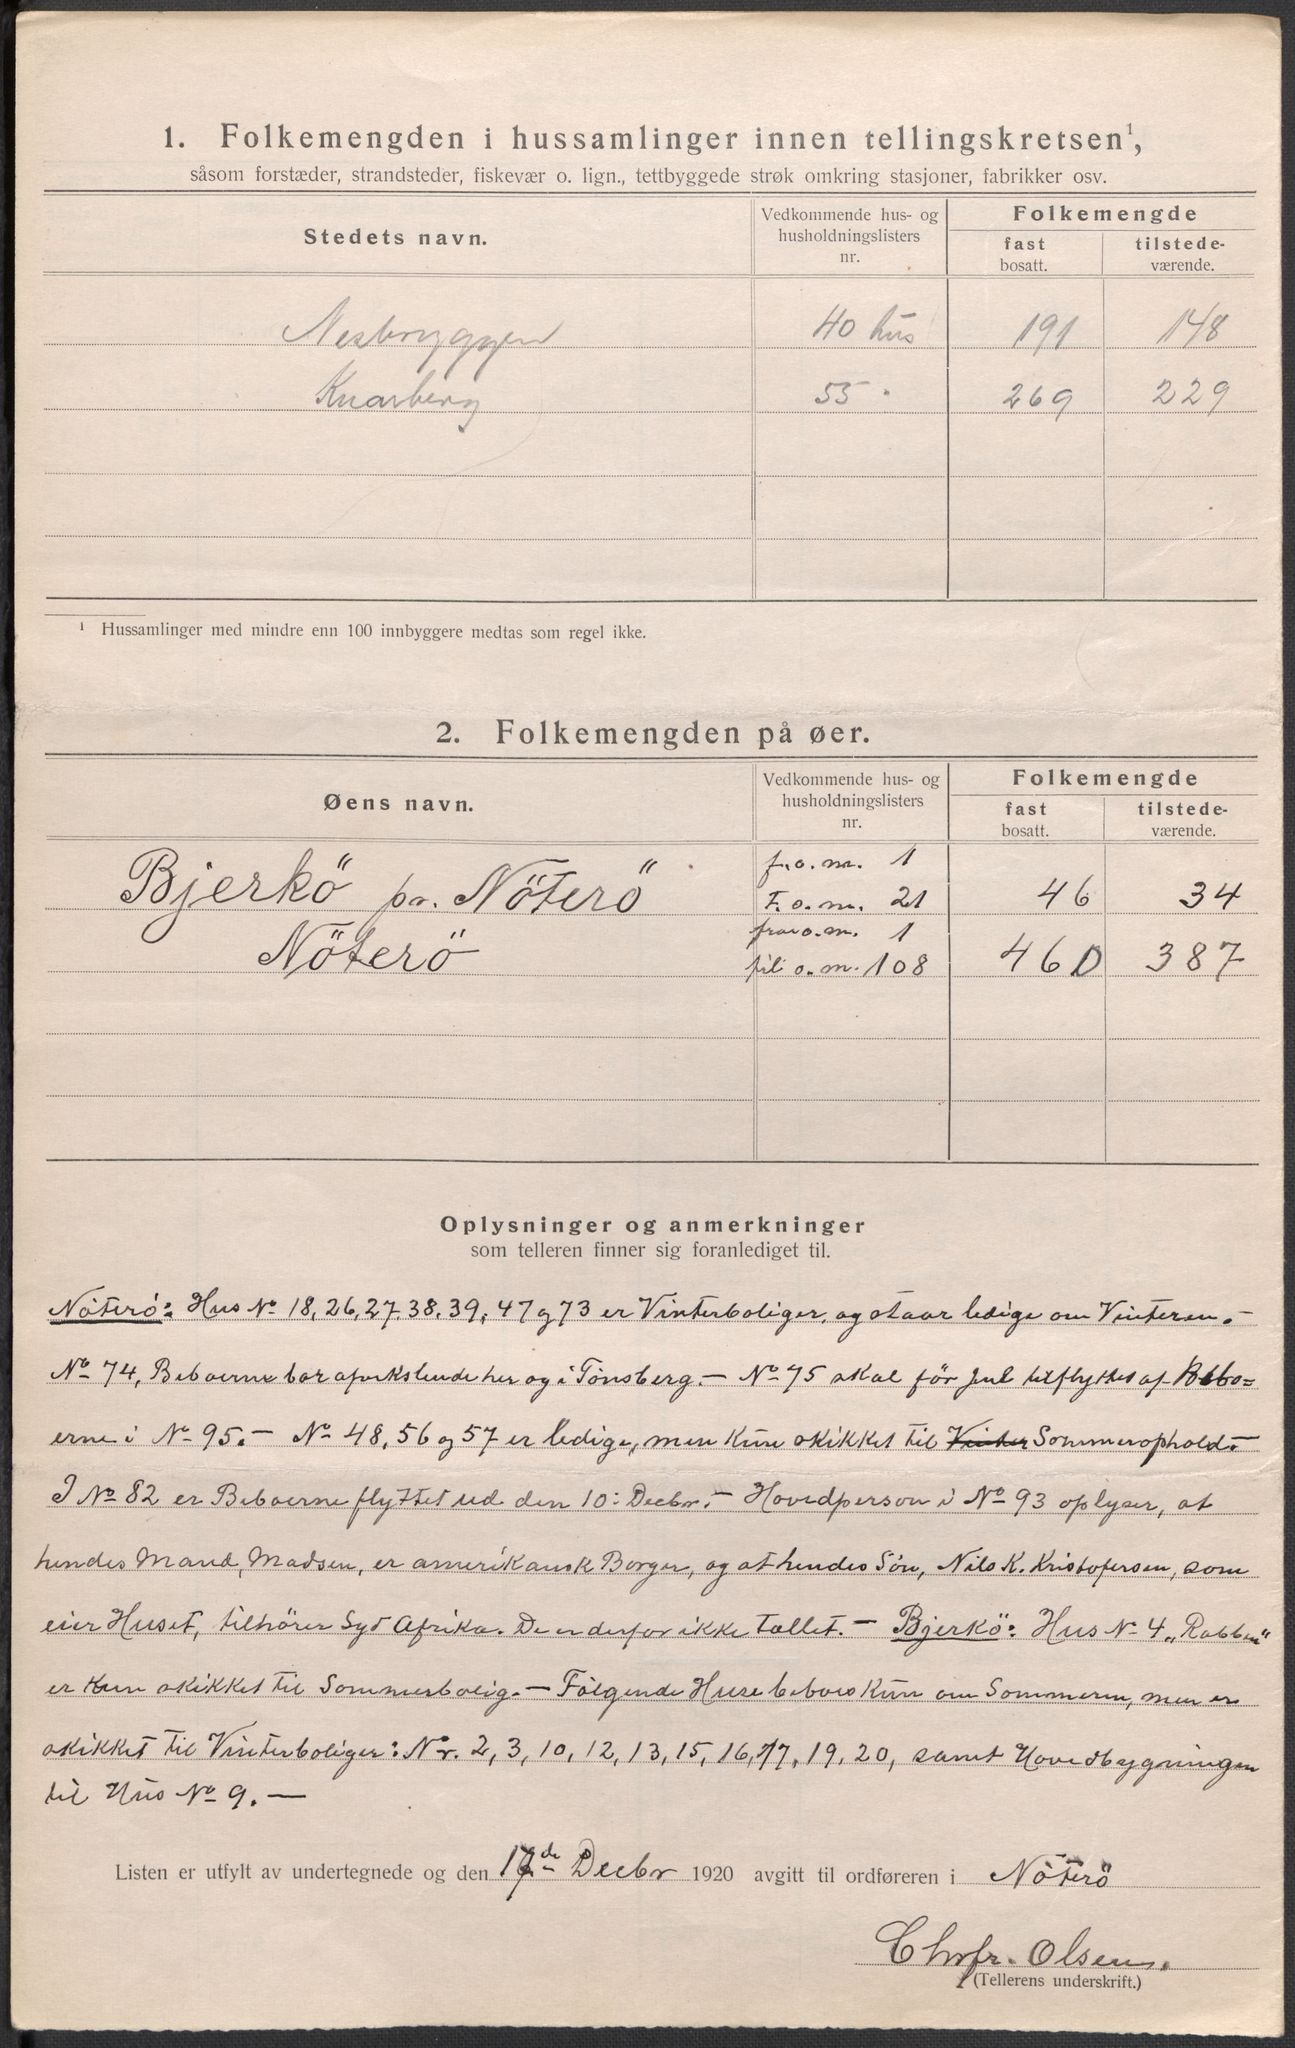 1. Folkemengden i hussamlinger innen tellingskretsen¹,
såsom forstæder, strandsteder, fiskevær o. lign., tettbyggede strøk omkring stasjoner, fabrikker osv.
Stedets navn.
Vedkommende hus- og
husholdningslisters
nr.
Folkemengde
fast
bosatt.
tilstede-
værende.
Nesbryggen 40 hus 191 148
Knarberg 55 " 269 229
¹ Hussamlinger med mindre enn 100 innbyggere medtas som regel ikke.
2. Folkemengden på øer.
Øens navn.
Vedkommende hus- og
husholdningslisters
nr.
Folkemengde
fast
bosatt.
tilstede-
værende.
f. o. m. 1
Bjerkö pr. Nöterö t. o. m. 21 46 34
fra o. m. 1
Nöterö til o. m. 108 460 387
Oplysninger og anmerkninger
som telleren finner sig foranlediget til.
Nöterö: Hus No 18, 26, 27, 38, 39, 47 og 73 er Vinterboliger, og staar ledige om Vinteren. –
No 74, Beboerne bor afvekslende her og i Tönsberg. – No 75 skal för Jul tilflyttes af Bebo=
erne i No 95. – No 48, 56 og 57 er ledige, men kun skikket til Vinter Sommerophold. –
I No 82 er Beboerne flyttet ud den 10: Decbr. – Hovedperson i No 93 oplyser, at
hendes Mand, Madsen, er amerikansk Borger, og at hendes Sön, Nils K. Kristofersen, som
eier Huset, tilhörer Syd Afrika. De er derfor ikke tallet. – Bjerkö: Hus No 4 „Rabben"
er kun skikket til Sommerbolig. – Fölgende Huse beboes kun om Sommeren, men er
skikket til Vinterboliger: Nr. 2, 3, 10, 12, 13, 15, 16, 17, 19, 20, samt Hovedbygningen
til Hus No 9. –
Listen er utfylt av undertegnede og den 17de Decbr 1920 avgitt til ordføreren i Nöterö
Chrfr. Olsen.
(Tellerens underskrift.)